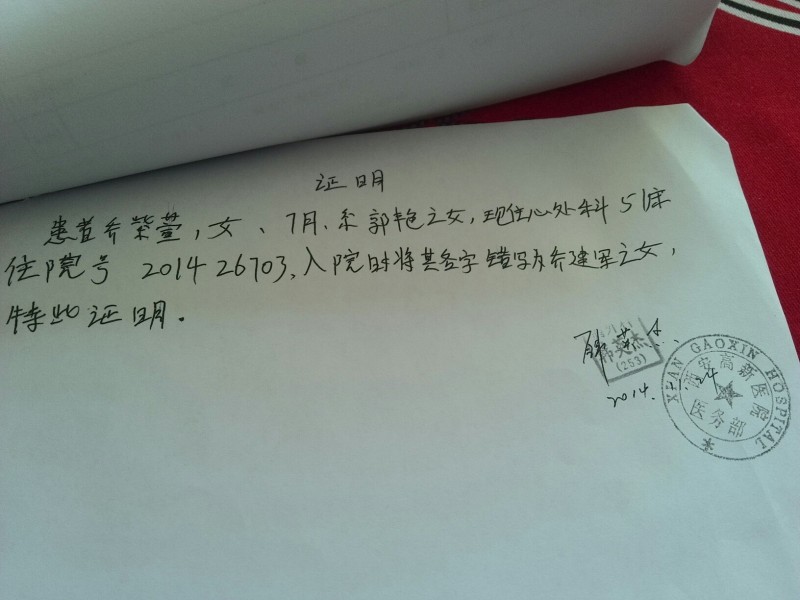 证明
患者乔紫萱，女、7月、系郭艳之女，现住心外科51床
住院号 201426703，入院时将其名字错写为乔建军之女，
特此证明。
韩英杰
(253)
2014. 24
XI'AN GAOXIN HOSPITAL
西安高新医院
医务部